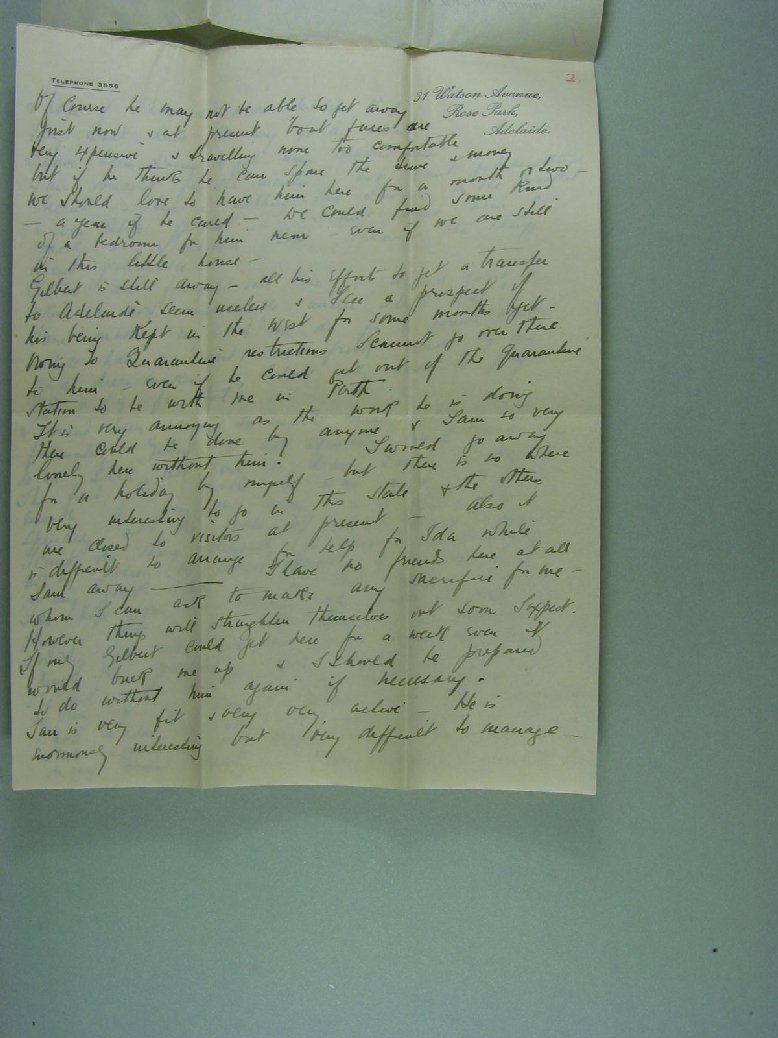 2.
TELEPHONE 3556
37 Watson Avenue,
Rose Park,
Adelaide.
Of course he may not be able to get away
just now & at present boat fares are
very expensive & travelling none too comfortable
but if he thinks he can spare the time & money
we should love to have him here for a month or two –
– a year if he cared – we could find some kind
of a bedroom for him near even if we are still
in this little house –
Gilbert is still away – all his efforts to get a transfer
to Adelaide seem useless & I see a prospect of
his being kept in the West for some months yet –
Owing to Quarantine restrictions I cannot go over there
to him – even if he could get out of the Quarantine
station to be with me in Perth.
It is very annoying as the work he is doing
there could be done by anyone & I am so very
lonely here without him. I would go away
for a holiday by myself but there is no where
very interesting to go in this State & the others
are closed to visitors at present – also it
is difficult to arrange for help for Ida while
I am away – I have no friends here at all
whom I can ask to make any sacrifice for me –
However things will straighten themselves out soon I expect.
If only Gilbert could get here for a week even it
would buck me up & I should be prepared
to do without him again if necessary.
Ian is very fit & very very active – He is
enormously interesting but very difficult to manage –